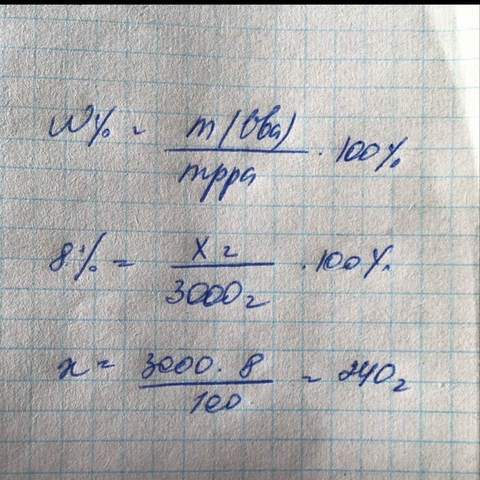 W% = m(вва) / mрра · 100%
8% = x г / 3000г · 100%
x = 3000 · 8 / 100 = 240г